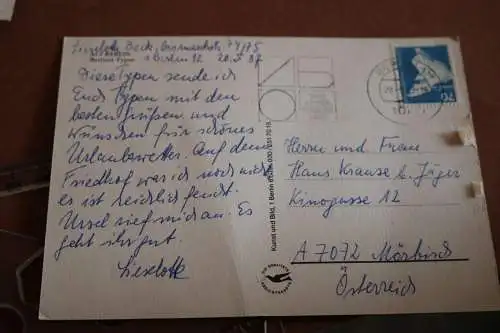 Lieselotte Beck, Bismarckstr. 74/75
1 Berlin 12 20.5.87
ALT BERLIN
Berliner Typen
Diese Typen sende ich
Euch Typen mit den
besten Grüßen und
Wünschen für schönes
Urlaubswetter. Auf dem
Friedhof war ich noch nicht
es ist reichlich feucht.
Ursel rief mich an. Es
geht ihr gut.
Lieselotte
Kunst und Bild, 1 Berlin
Herrn und Frau
Hans Krause b/ Jäger
Kinogasse 12
A 7072 Mörbisch
Österreich